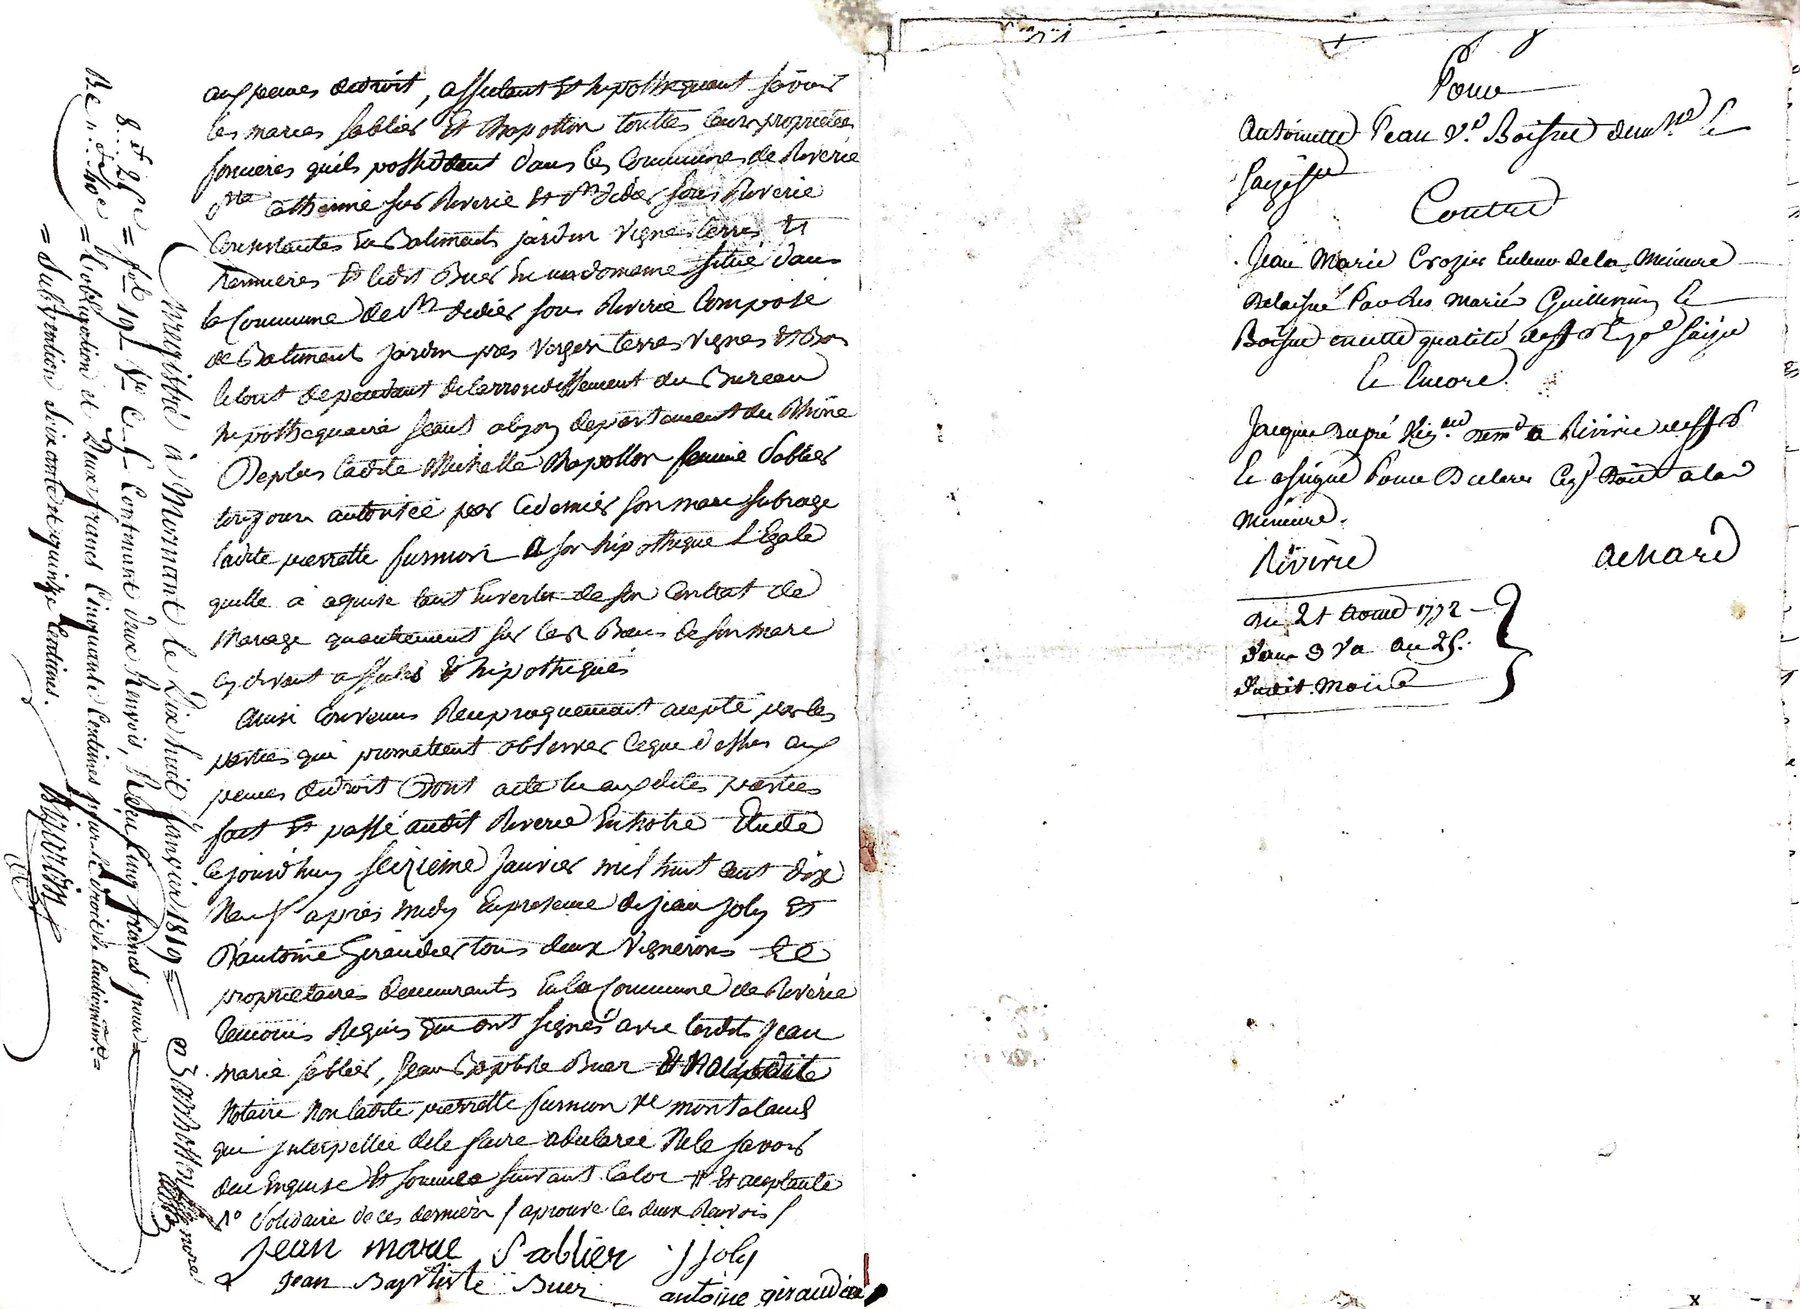 aux peines de droit, affectant et hipothequant savoir
les mariés Sablier et Chapotton touttes leurs proprietées
foncieres quils possedent dans les Communes de Riverie
Ste Catherine sur Riverie et St didier sous Riverie
Consistantes En Batiments jardin vignes terres et
et ledit Buer En un domaine situé dans
la Commune de St didier sous Riverie Composé
de Batiments jardin prés verger terres vignes et Bois
le tout dependant de larrondissement du Bureau
hipothequaire séant a lyon departement du Rhône
Deplus ladite Michelle Chapotton femme Sablier
toujours autorisée par ce dernier son mari subroge
ladite pierrette furnion a son hipotheque Légale
quelle a aquise tant En vertu de son Contrat de
Mariage quautrement sur les Biens de son mari
cy devant affectés et hipothequés
Ainsi Convenu Reciproquement accepté par les
parties qui promettent observer ceque dessus aux
peines de droit Dont acte lu auxdites parties
fait et passé audit Riverie En notre Etude
cejourdhuy seizieme janvier mil huit cent dix
Neuf après midy En presence de jean joly et
dantoine Giraudier tous deux vignerons et
proprietaires demeurants En la Commune de Riverie
temoins Requis qui ont signés avec lesdits jean
marie Sablier, jean Baptiste Buer et
Notaire Non ladite pierrette furnion Ve montaland
qui interpellée de le faire a declaree Ne le savoir
due Enquise et sommée suivant la loi # et acceptante
1º Solidaire de ces derniers / aprouvé les deux Renvois /
jean marie Sablier j joly
jean Baptiste Buer antoine giraudier
Enregistré à Mornant le Dix huit Janvier 1819 =
8. et 25 c = fol. 19 Contenant deux Renvois, Reçu Cinq francs pour
= l'obligation et Deux francs Cinquante Centimes pour le droit de Cautionnemt. =
= Subvention Soixante et quinze Centimes.
Pour
Antoinette Peau Ve. Boisne demsse Et
Saizissnte
Contre
Jean Marie Crozier tuteur de la Mineure
Delaissé Par les mariés Guillermin Et
Boisne en cette qualité deffr Et Pal Saizie
Et Encore
Jacques dupré Nég. md a Riviric deffr
Et assigné Pour Declarer ce qil Doit a la
Mineure.
Rivirie achard
Du 21 Aoust 1772
dudit. Mois